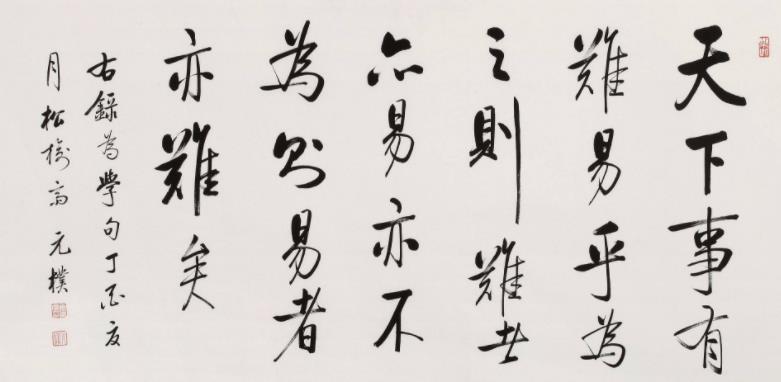 天下事有
難易乎為
之則難者
亦易亦不
為則易者
亦難矣
右錄為學句丁酉夏
月松高元樸